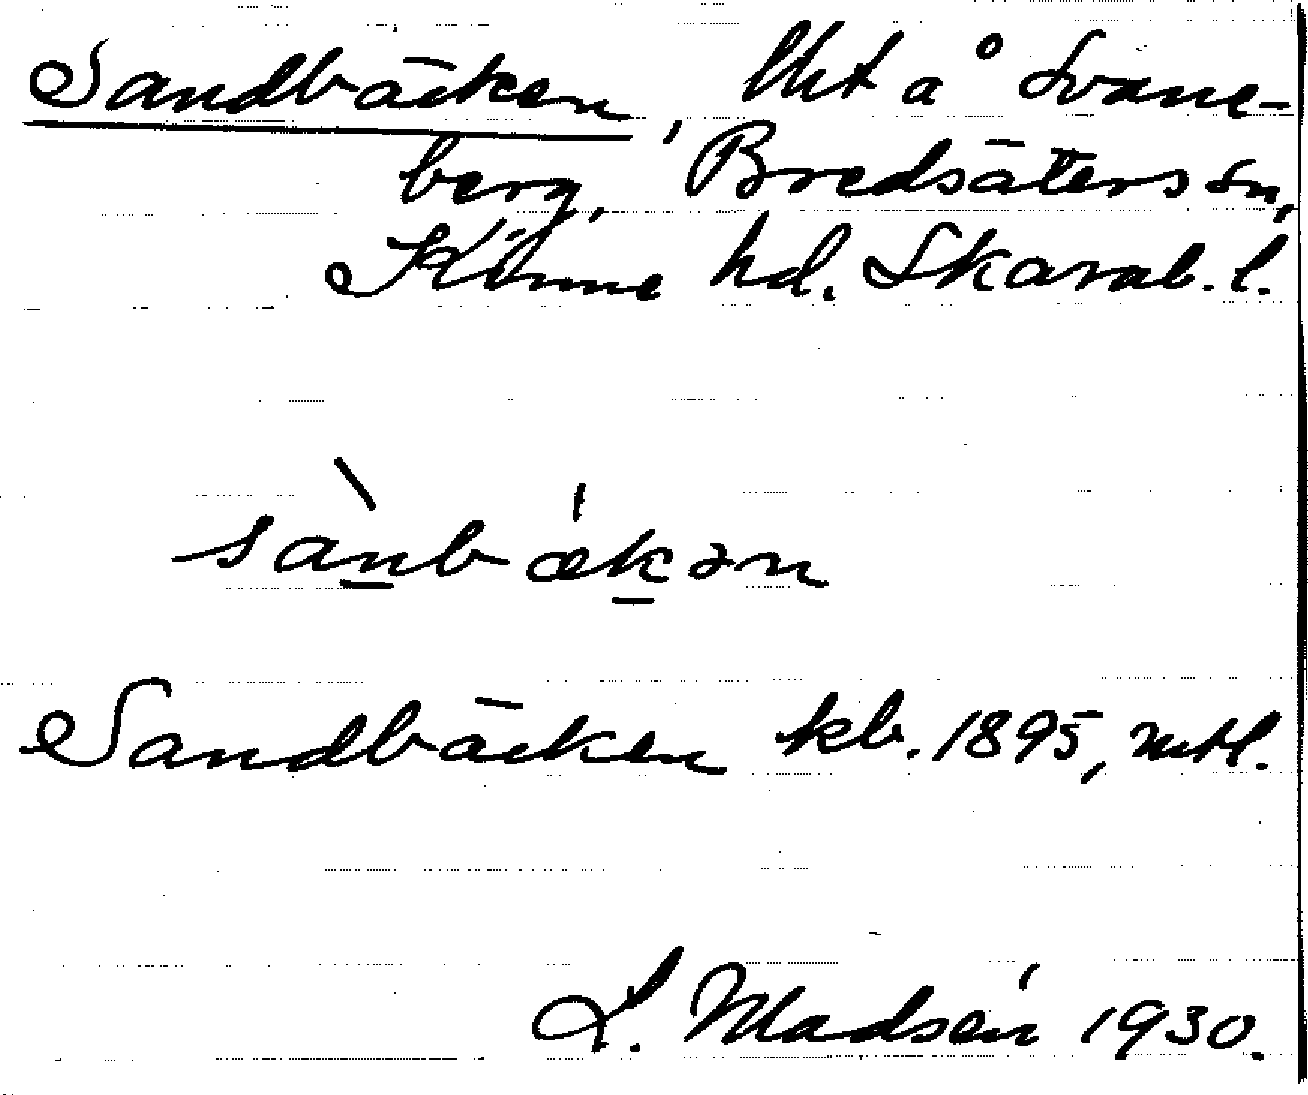 Sandbäcken, lht å Svane-
berg, Bredsäters sn,
Kinne hd. Skarab. l.
sànbækən
Sandbäcken kb. 1895, mtl.
L. Madsén 1930.